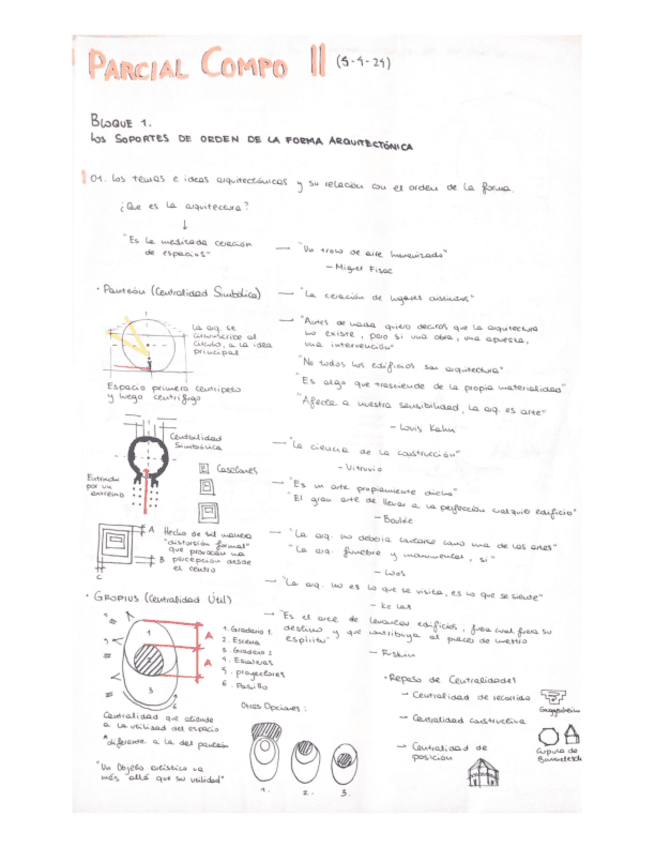 PARCIAL COMPO II (5-4-24)
BLOQUE 1.
LOS SOPORTES DE ORDEN DE LA FORMA ARQUITECTÓNICA
01. Los temas e ideas arquitectónicas y su relación con el orden de la forma.
¿Que es la arquitectura?
↓
"Es la meditada creación
de espacios"
— "Un trozo de aire humanizado"
– Miguel Fisac
· Panteón (Centralidad Simbólica)
— "La creación de lugares distintos"
La arq. se
circunscribe al
círculo, a la idea
principal
Espacio primero centrípeto
y luego centrífugo
→ "Antes de nada quiero deciros que la arquitectura
no existe, pero si una obra, una apuesta,
una intervención"
"No todos los edificios son arquitectura"
"Es algo que trasciende de la propia materialidad"
"Afecta a nuestra sensibilidad, la arq. es arte"
– Louis Kahn
Centralidad
Simbólica
Entrada
por un
extremo
Casetones
→ "La ciencia de la construcción"
– Vitruvio
→ "Es un arte propiamente dicho"
"El gran arte de llevar a la perfección cualquier edificio"
– Boullée
A
B
C
Hecho de tal manera
"distorsión formal"
que provocan una
percepción desde
el centro
→ "La arq. no debería contarse como una de las artes"
"La arq. funebre y monumental, si"
– Loos
→ "La arq. no es lo que se visita, es lo que se siente"
· GROPIUS (Centralidad Útil)
→ "Es el arte de levantar edificios, fuera cual fuera su
destino y que contribuya al placer de
espíritu"
– Ruskin
1
2
3
4
5
6
A
A
1. Graderio 1
2. Escena
3. Graderio 2
4. Escaleras
5. proyectores
6. Pasillo
Centralidad que atiende
a la utilidad del espacio
diferente a la del panteón
"Un Objeto artístico va
más allá que su utilidad"
Otras Opciones:
1.
2.
3.
· Repaso de Centralidades
→ Centralidad de recorrido
Guggenheim
→ Centralidad constructiva
Cúpula de
→ Centralidad de
posición